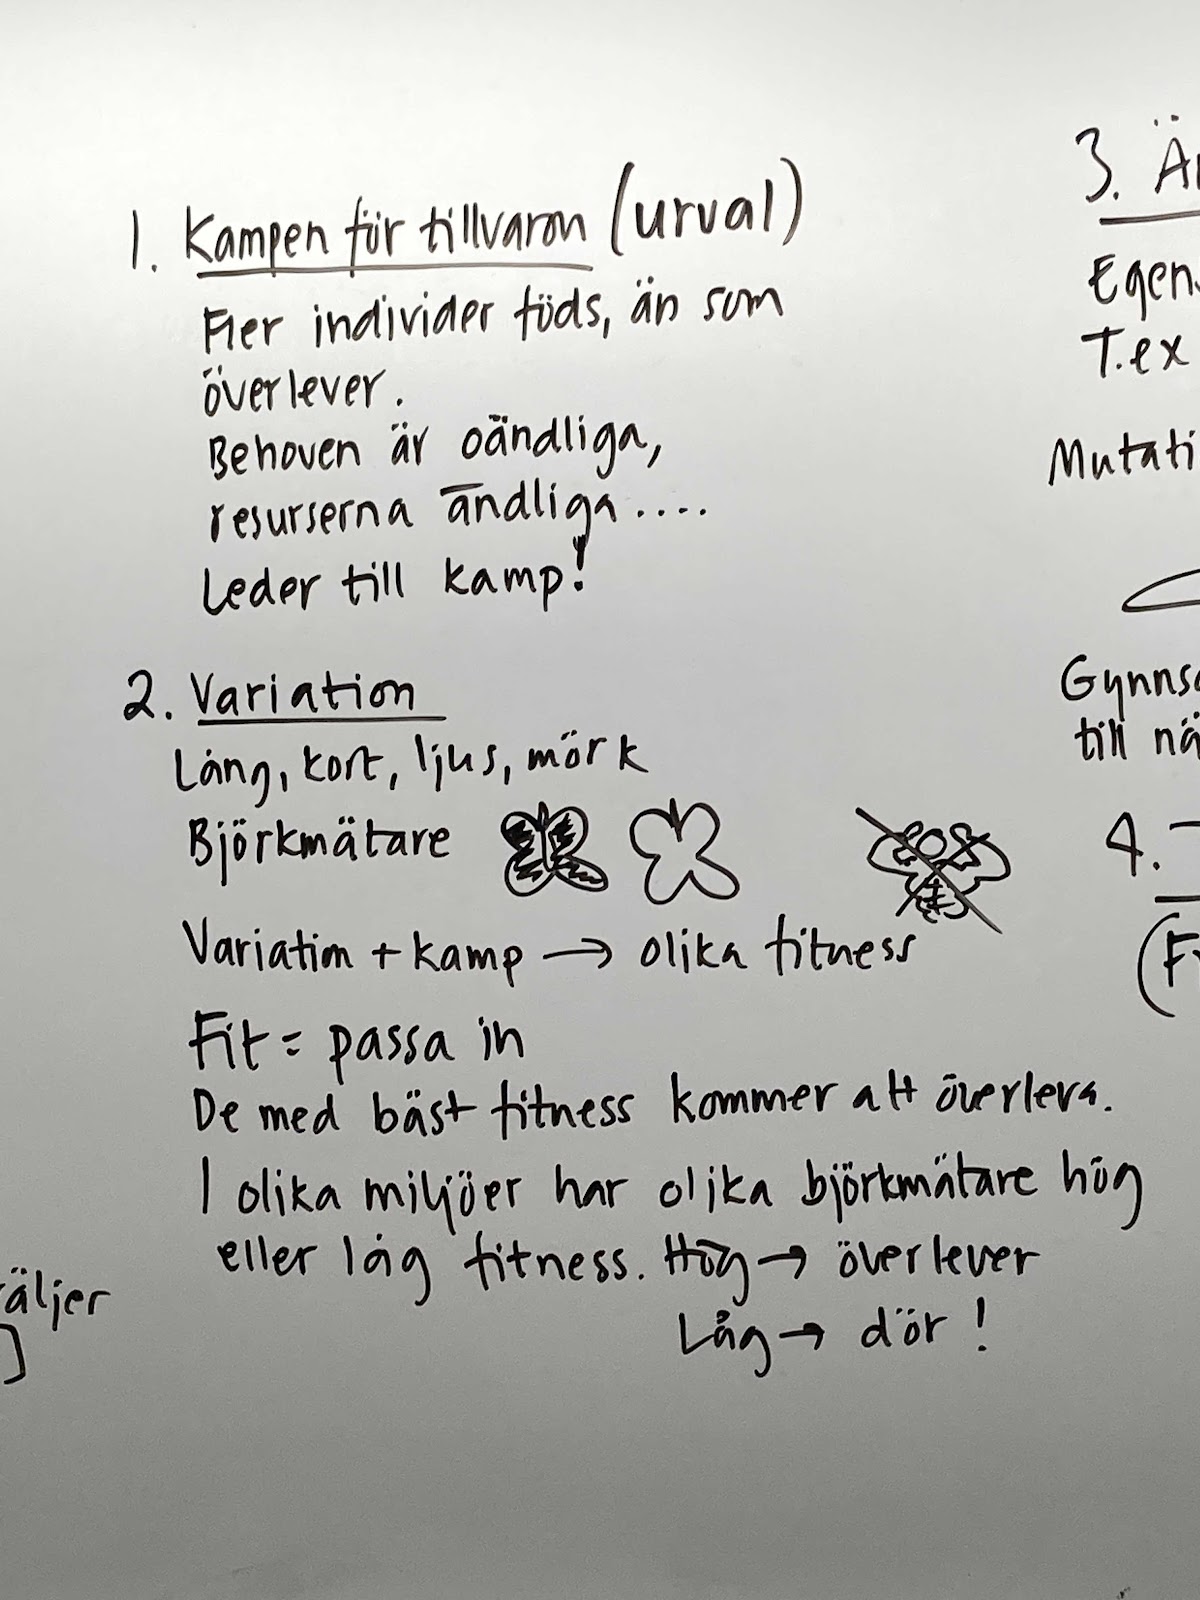 1. Kampen för tillvaron (urval)
Fler individer föds, än som
överlever.
Behoven är oändliga,
resurserna ändliga....
Leder till kamp!
2. Variation
Lång, kort, ljus, mörk
Björkmätare
Variation + kamp → olika fitness
Fit = passa in
De med bäst fitness kommer att överleva.
I olika miljöer har olika björkmätare hög
eller låg fitness. Hög → överlever
Låg → dör!
äljer
]
3. Är
Egens
T.ex
Mutati
Gynnsa
till nä
4.
(F